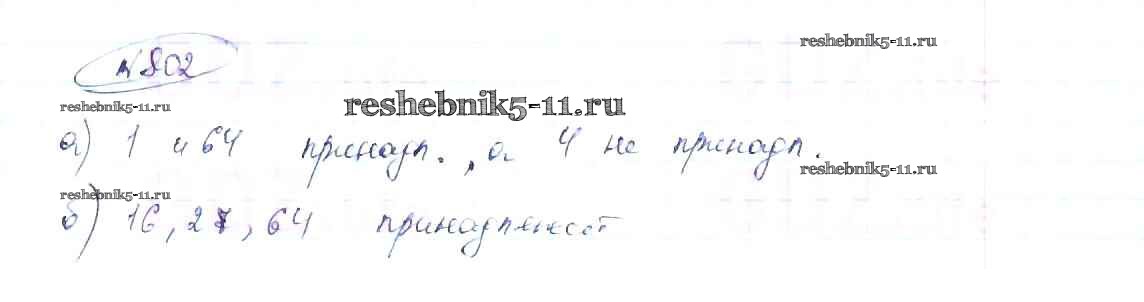 reshebnik5-11.ru
№802
reshebnik5-11.ru
reshebnik5-11.ru
а) 1 и 64 принадл., а 4 не принадл.
reshebnik5-11.ru
reshebnik5-11.ru
б) 16, 27, 64 принадлежат